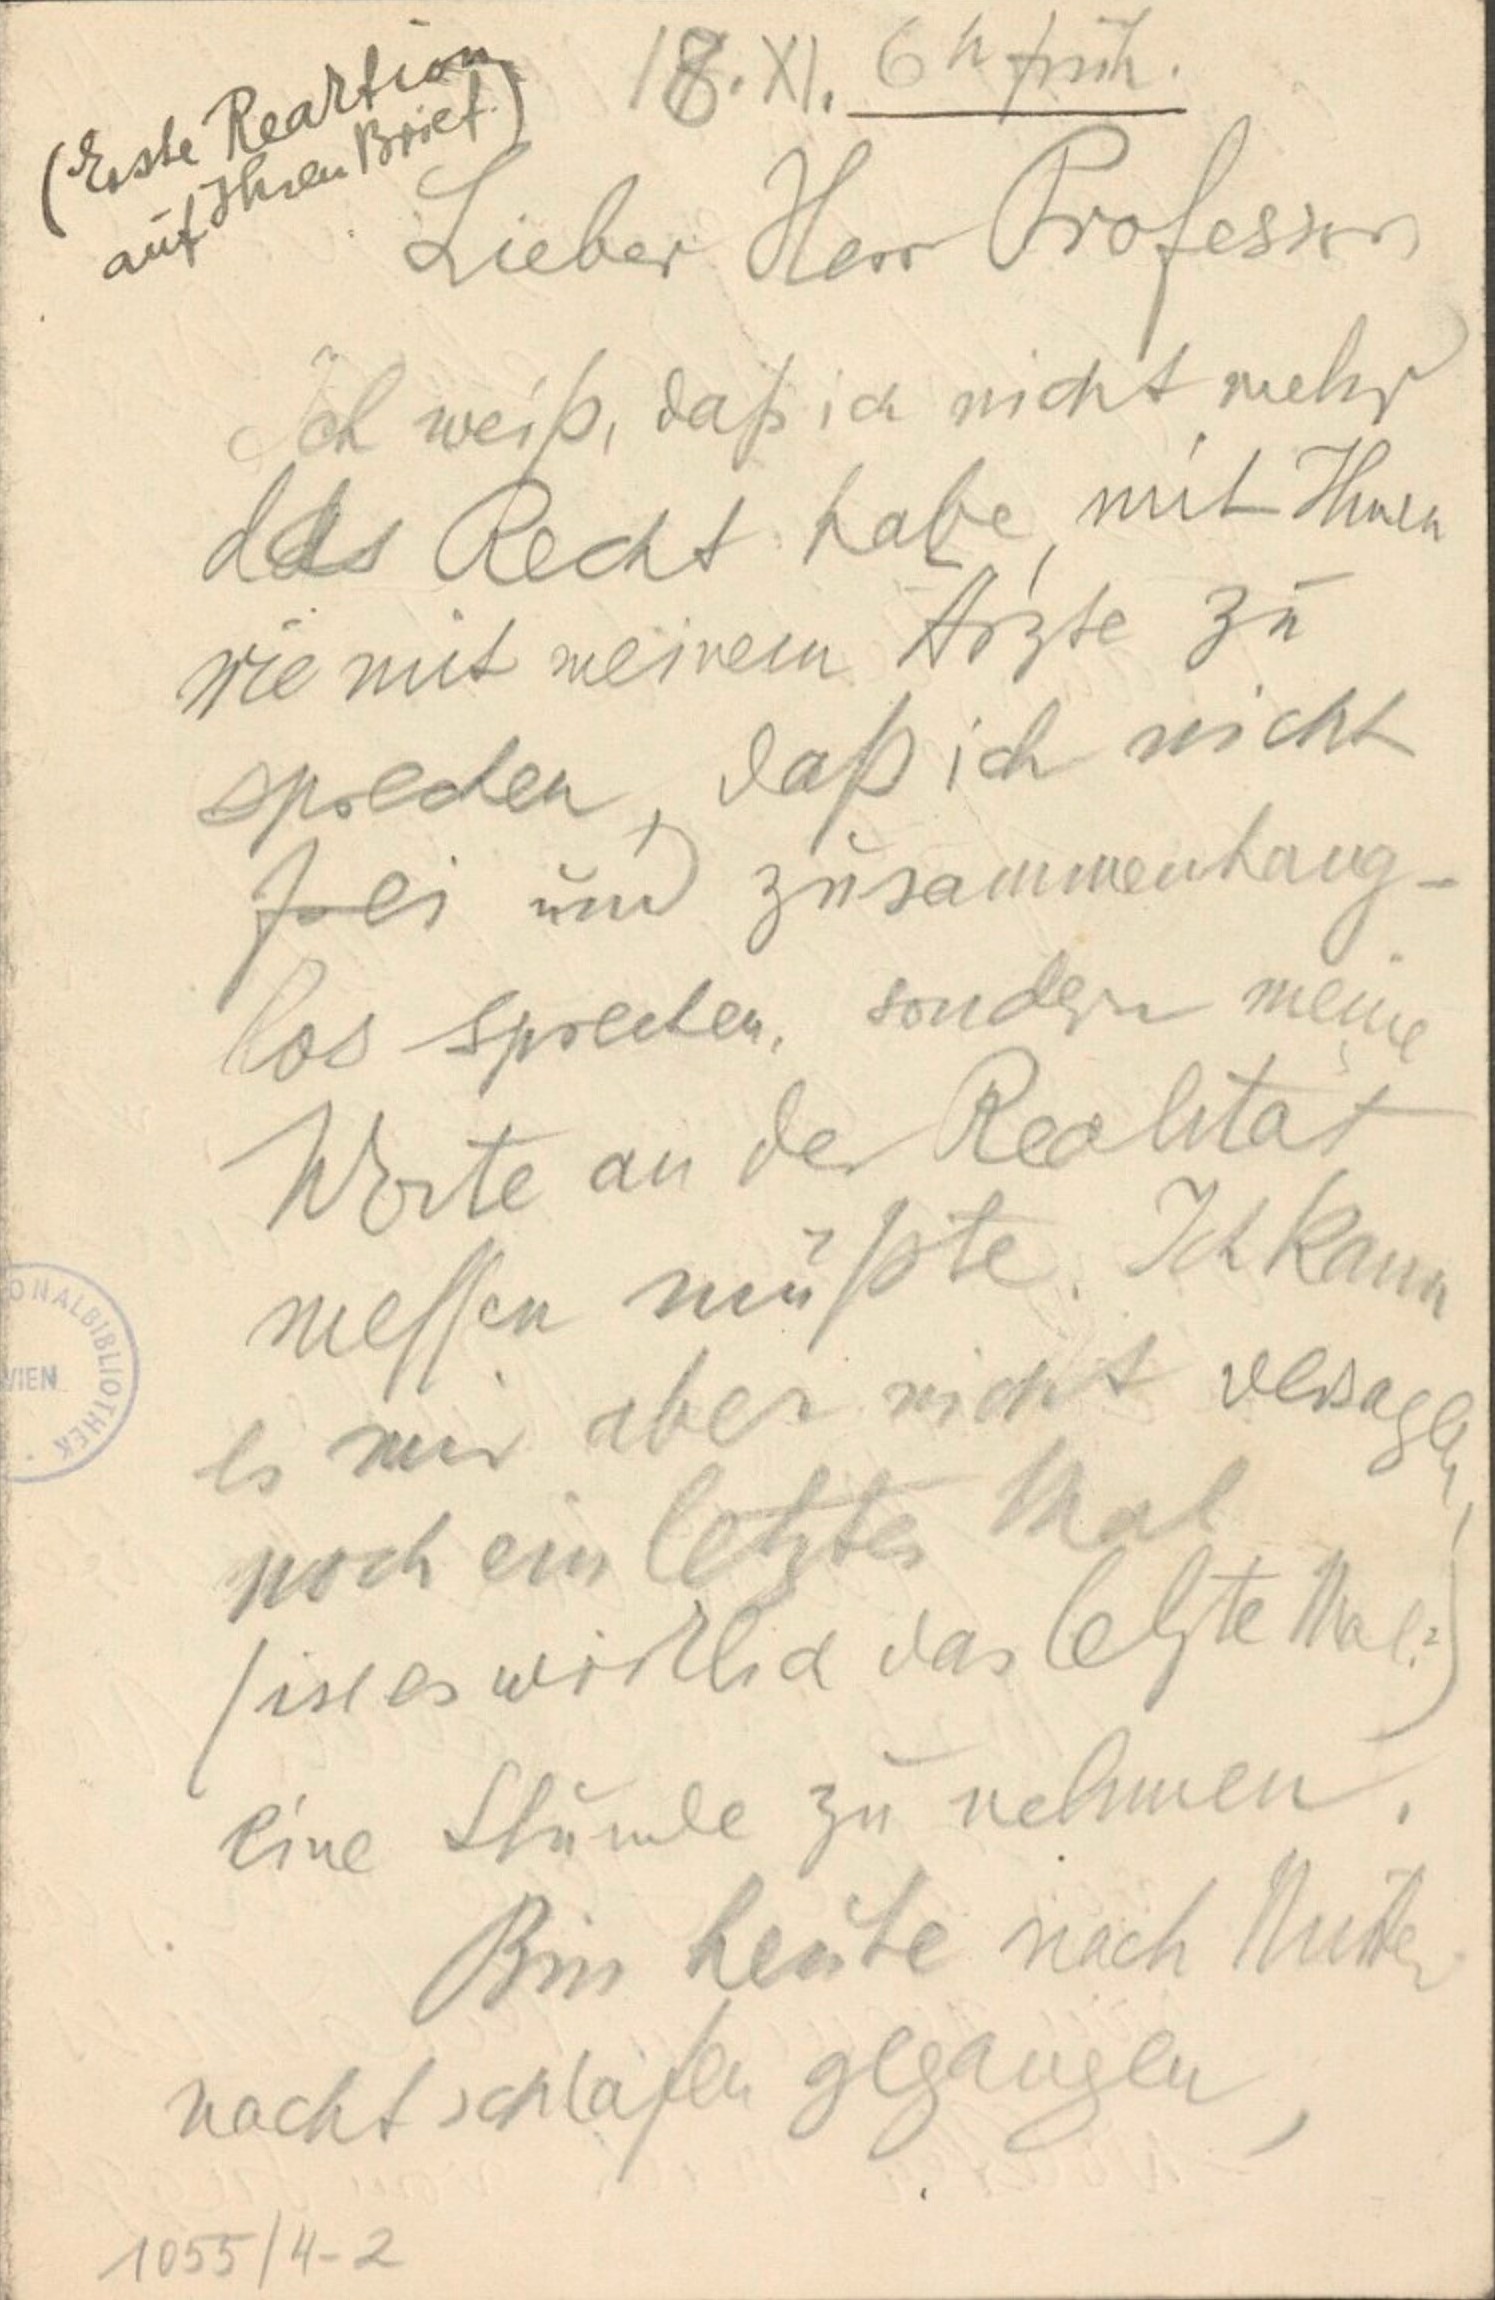 (Erste Reaktion
auf Ihren Brief.)
18. XI. 6 h früh.
Lieber Herr Professor
Ich weiß, daß ich nicht mehr
das Recht habe, mit Ihnen
wie mit meinem Arzte zu
sprechen, daß ich nicht
frei und zusammenhang-
los sprechen, sondern meine
Worte an der Realität
messen müßte. Ich kann
es mir aber nicht versagen,
noch ein letztes Mal
(ist es wirklich das letzte Mal?)
eine Stunde zu nehmen.
Bin heute nach Mitter
nacht schlafen gegangen,
1055/4-2
ONALBIBLIOTHEK
WIEN